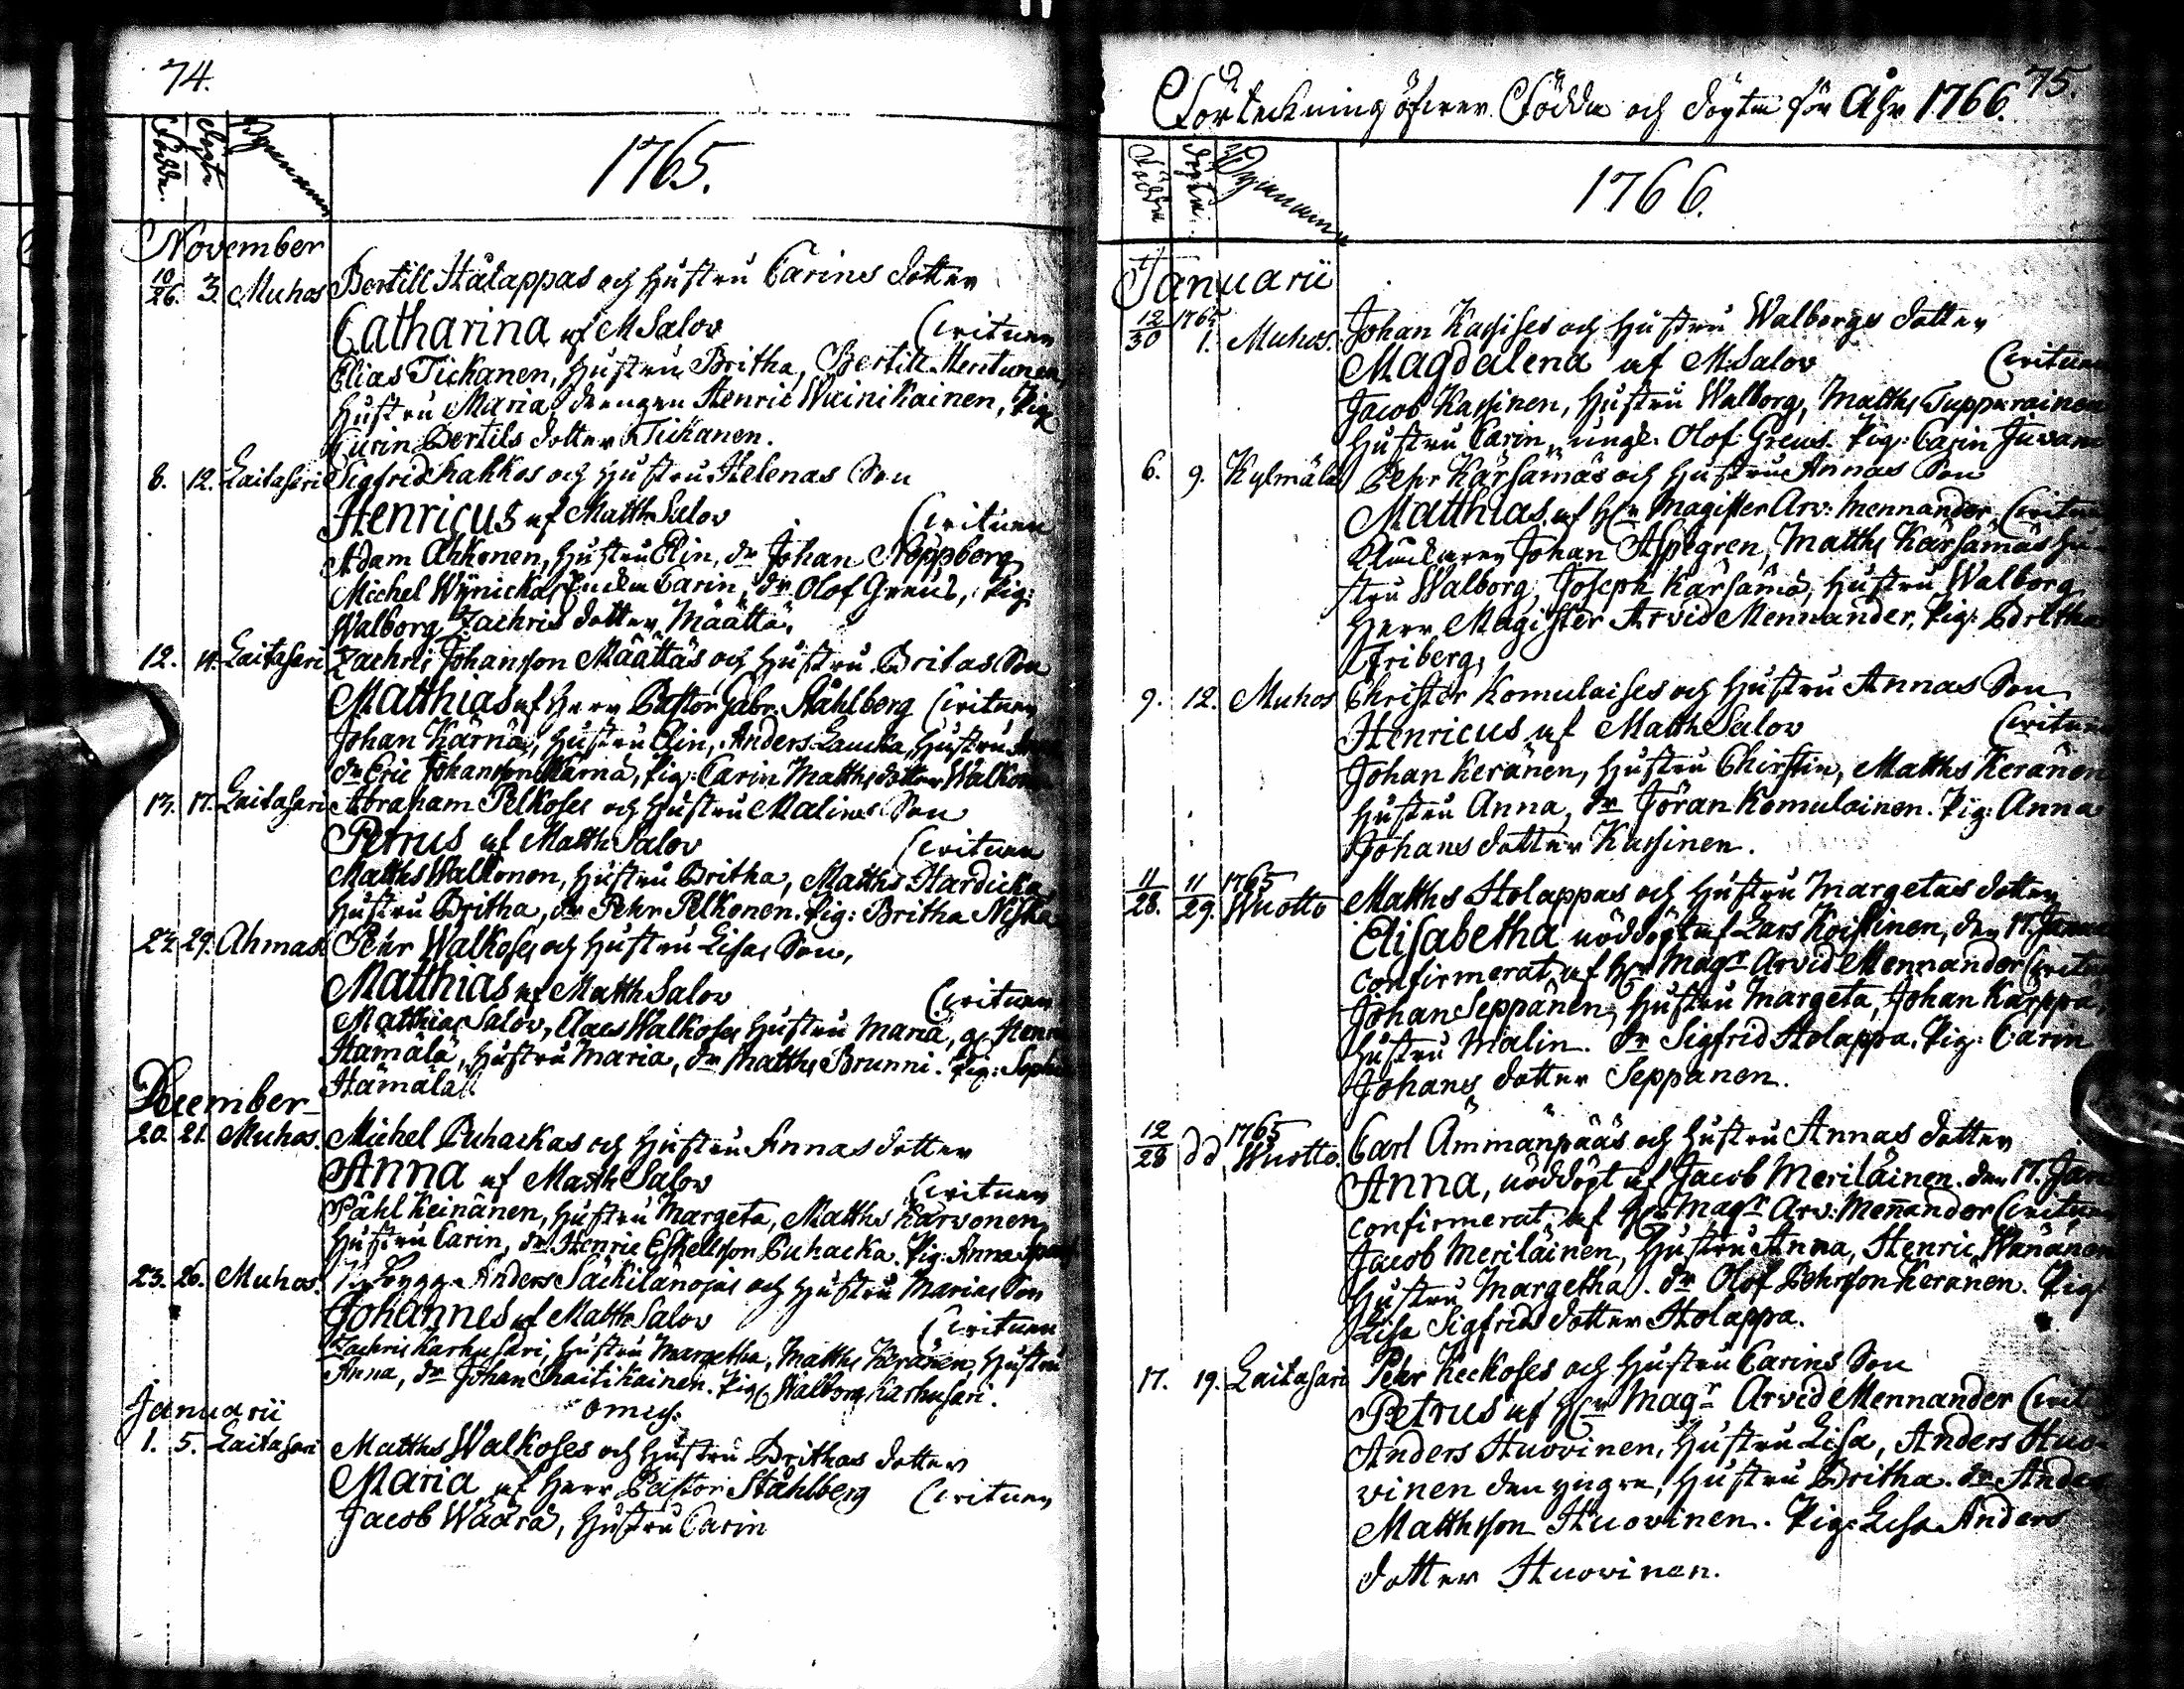 74.
Födde. Döpte Byarnamn
1765.
November
10/26. 3. Muhos Bertill Hålappas och Hustru Carins dotter
Catharina af M Salov Critnen
Elias Tickanen, Hustru Britha, Bertill Heritunen,
Hustru Maria, drengen Henric Wäinikainen, Pig:
Carin Bertils dotter Tickanen.
8. 12. Laitasari Sigfrid hakkos och Hustru Helenas Son
Henricus af Matth Salov Critnen
Adam Ahkonen, Hustru Elin, dr Johan Noppberg
Michel Wÿnicka, Enckn Carin, dr Olof Greus, Pig:
Walborg Zachris dotter Määttä.
12. 14. Laitasari Zachris Johansson Määttäs och Hustru Britas Son
Matthias af Herr Pastor Gabr. Ståhlberg Critnen
Johan Kärnä, Hustru Elin, Anders Laucka, Hustru
dr Eric Johansson Kärnä, Pig: Carin Matths dotter Walkonen
13. 17. Laitasari Abraham Pelkoses och Hustru Malins Son
Petrus af Matth Salov Critnen
Matths Walkonen, Hustru Britha, Matths Hardicka
Hustru Britha, dr Pehr Pelkonen. Pig: Britha Niska
27. 29. Ahmas Pehr Walkoses och Hustru Lisas Son,
Matthias af Matth Salov Critnen
Matthias Salov, Claes Walkoses Hustru Maria, Henric
Hämälä, Hustru Maria, dr Matths Brunni. Pig: Sophia
Hämälä.
December
20. 21. Muhos. Michel Puhackas och Hustru Annas dotter
Anna af Matth Salov Critnen
Påhl Keinänen, Hustru Margeta, Matths Karvonen,
Hustru Carin, dr Henric Eskellsson Puhacka. Pig: Anna
23. 26. Muhos. Anders Säckilänojas och Hustru Marias Son
Johannes af Matth Salov Critnen
Zachris Karhusari, Hustru Margetha, Matths Keränen, Hustru
Anna, dr Johan Chaitikainen. Pig: Walborg Karhusari.
Januarii
1. 5. Laitasari Matths Walkoses och Hustru Brithas dotter
Maria af Herr Pastor Ståhlberg Critnen
Jacob Wäärä, Hustru Carin
75.
Förteckning öfwer Födde och döpte för Åhr 1766.
Födde döpte. Byarnamn
1766.
Januarii
12/30 1765 1. Muhos. Johan Kassises och Hustru Walborgs dotter
Magdalena af M Salov Critnen
Jacob Kassinen, Hustru Walborg, Matths Tuppurainen
Hustru Carin, ungk: Olof Greus. Pig: Carin Juvani
6. 9. Kylmälä Pehr Kärsämäs och Hustru Annas Son
Matthias af Hr Magister Arv: Mennander Critnen
Klockaren Johan Aspegren, Matths Kärsämäs Hu-
stru Walborg, Joseph Kärsämä, Hustru Walborg
Herr Magister Arvid Mennander, Pig: Britha
Friberg.
9. 12. Muhos Christer Komulaises och Hustru Annas Son
Henricus af Matth Salov Critnen
Johan Keränen, Hustru Chirstin, Matths Keränen
Hustru Anna, dr Jöran Komulainen. Pig: Anna
Johans dotter Kassinen.
11/28. 11/29. 1765 Wuotto Matths Holappas och Hustru Margetas dotter
Elisabetha nöddöpt af Lars Koistinen, den 17. Januarii
confirmerat af Hr Magr Arvid Mennander Critnen
Johan Seppänen, Hustru Margeta, Johan Karppa,
Hustru Malin. dr Sigfrid Holappa. Pig: Carin
Johans dotter Seppänen.
12/28 dd 1765 Wuotto. Carl Ämmänpääs och Hustru Annas dotter
Anna, nöddöpt af Jacob Meriläinen. den 17. Jan
confirmerat af Hr Magr Arv: Mennander Critnen
Jacob Meriläinen, Hustru Anna, Henric Wänänen
Hustru Margetha. dr Olof Pehrsson Keränen. Pig:
Lisa Sigfrids dotter Holappa.
17. 19. Laitasari Pehr Keckoses och Hustru Carins Son
Petrus af Hr Magr Arvid Mennander Critnen
Anders Huovinen, Hustru Lisa, Anders Huo-
vinen den yngre, Hustru Britha. dr Anders
Matthsson Huovinen. Pig: Lisa Anders
dotter Huovinen.